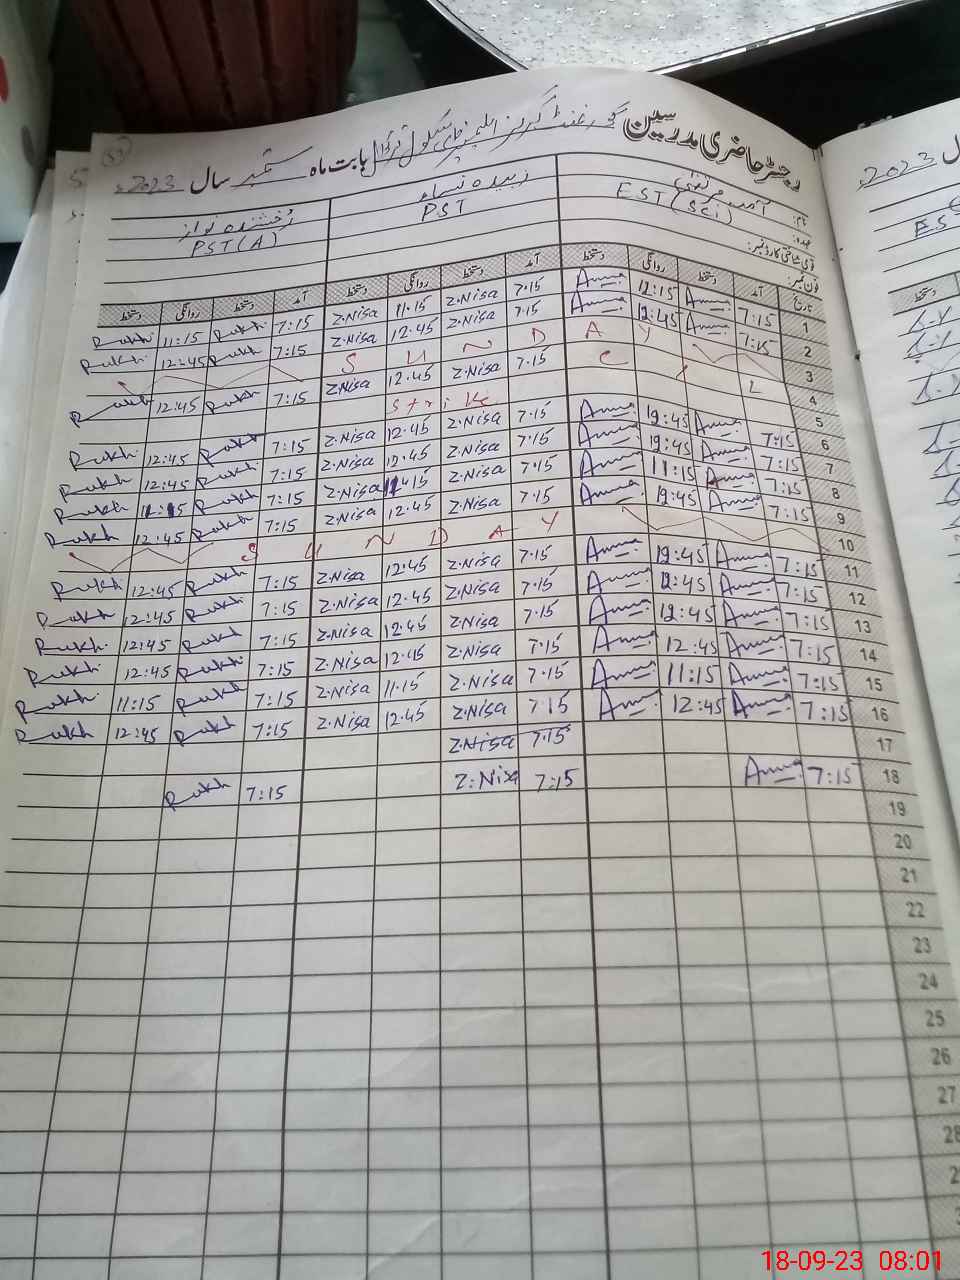 رجسٹر حاضری مدرسین گورنمنٹ گرلز سکول بابت ماہ ستمبر سال 2023ء
53
نام: آمنہ مرتضیٰ زبیدہ نساء رخشندہ نواز
عہدہ: EST (Sci) PST PST (A)
قومی شناختی کارڈ نمبر:
فون نمبر:
تاریخ آمد دستخط روانگی دستخط آمد دستخط روانگی دستخط آمد دستخط روانگی دستخط
1 7:15 Amna 12:15 Amna 7.15 Z.Nisa 11.15 Z.Nisa 7:15 Rukh 11:15 Rukh
2 7:15 Amna 12:45 Amna 7.15 Z.Nisa 12.45 Z.Nisa 7:15 Rukh 12:45 Rukh
3 SUNDAY
4 L C/ 7.15 Z.Nisa 12.45 Z.Nisa 7:15 Rukh 12:45 Rukh
5 Strike
6 7:15 Amna 12:45 Amna 7.15 Z.Nisa 12.45 Z.Nisa 7:15 Rukh 12:45 Rukh
7 7:15 Amna 12:45 Amna 7.15 Z.Nisa 12.45 Z.Nisa 7:15 Rukh 12:45 Rukh
8 7:15 Amna 11:15 Amna 7.15 Z.Nisa 11.15 Z.Nisa 7:15 Rukh 11:15 Rukh
9 7:15 Amna 12:45 Amna 7.15 Z.Nisa 12.45 Z.Nisa 7:15 Rukh 12:45 Rukh
10 SUNDAY
11 7:15 Amna 12:45 Amna 7.15 Z.Nisa 12.45 Z.Nisa 7:15 Rukh 12:45 Rukh
12 7:15 Amna 12:45 Amna 7.15 Z.Nisa 12.45 Z.Nisa 7:15 Rukh 12:45 Rukh
13 7:15 Amna 12:45 Amna 7.15 Z.Nisa 12.45 Z.Nisa 7:15 Rukh 12:45 Rukh
14 7:15 Amna 12:45 Amna 7.15 Z.Nisa 12.45 Z.Nisa 7:15 Rukh 12:45 Rukh
15 7:15 Amna 11:15 Amna 7.15 Z.Nisa 11.15 Z.Nisa 7:15 Rukh 11:15 Rukh
16 7:15 Amna 12:45 Amna 7.15 Z.Nisa 12.45 Z.Nisa 7:15 Rukh 12:45 Rukh
17 7.15 Z.Nisa
18 7:15 Amna 7:15 Z.Nisa 7:15 Rukh
19
20
21
22
23
24
25
26
27
28
2023ء
18-09-23 08:01